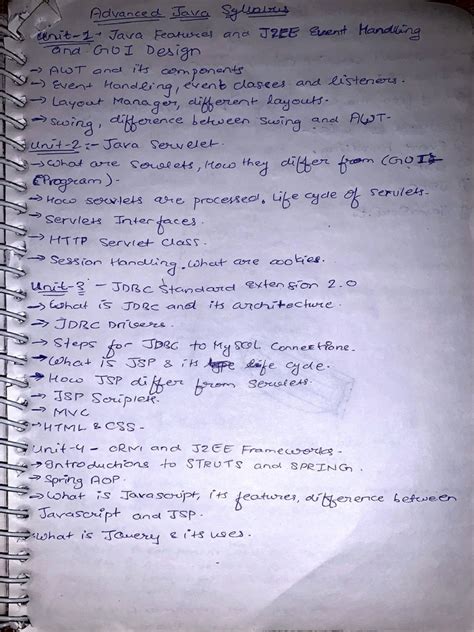 Advanced Java Syllabus
Unit-1- Java Features and J2EE Event Handling
and GUI Design
→ AWT and its components
→ Event Handling, event classes and listeners.
→ Layout Manager, different layouts.
→ Swing, difference between swing and AWT.
Unit-2:- Java Servelet.
→ What are Servlets, How they differ from (GUI
Program).
→ How servlets are processed. Life cycle of servlets.
→ Servlets Interfaces.
→ HTTP Servlet Class.
→ Session Handling. What are cookies.
Unit-3 - JDBC Standard extension 2.0
→ What is JDBC and its architecture.
→ JDBC Drivers.
→ Steps for JDBC to MySQL Connections.
→ What is JSP & its life cycle.
→ How JSP differ from servlets.
→ JSP Scriplets.
→ MVC
→ HTML & CSS -
Unit-4 - ORM and J2EE Frameworks-
→ Introductions to STRUTS and SPRING.
→ Spring AOP.
→ What is Javascript, its features, difference between
Javascript and JSP.
What is JQuery & its uses.